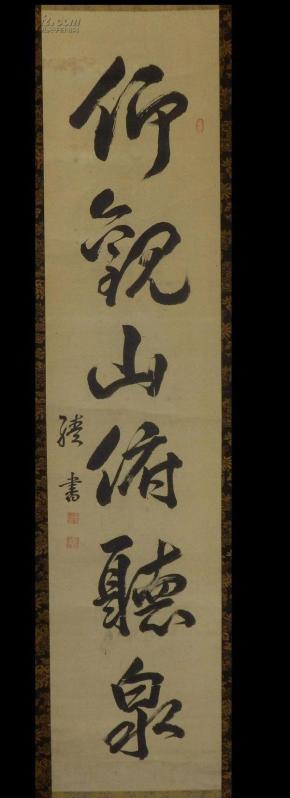 仰観山俯聴泉
書